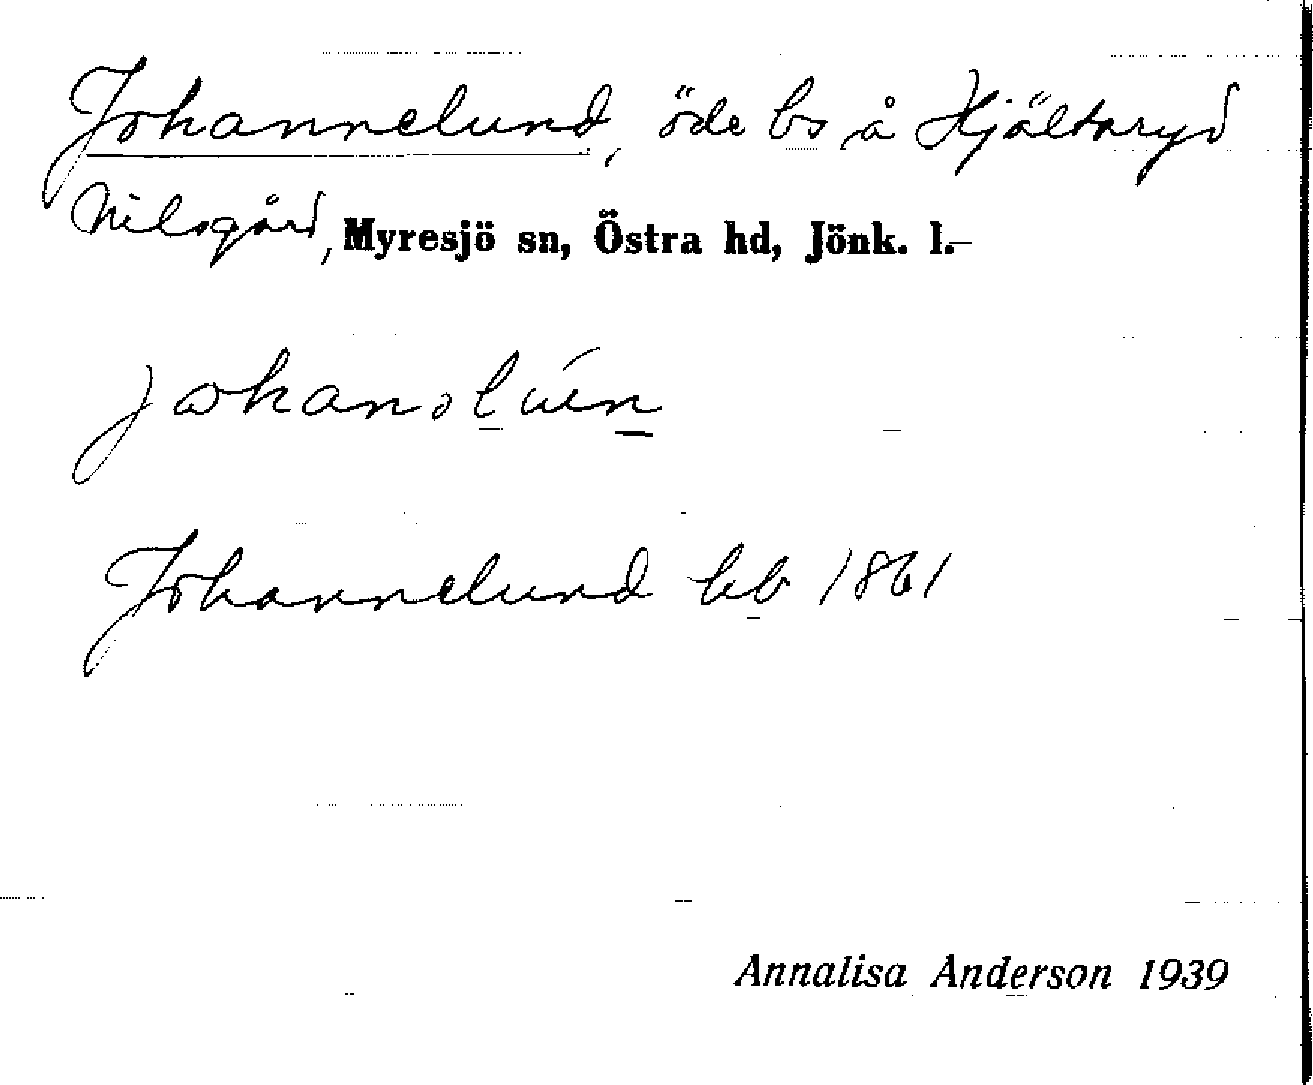 Johannelund, öde bs å Hjältaryd
Nilsgård, Myresjö sn, Östra hd, Jönk. l.
Johannelund hb 1861
Annalisa Anderson 1939